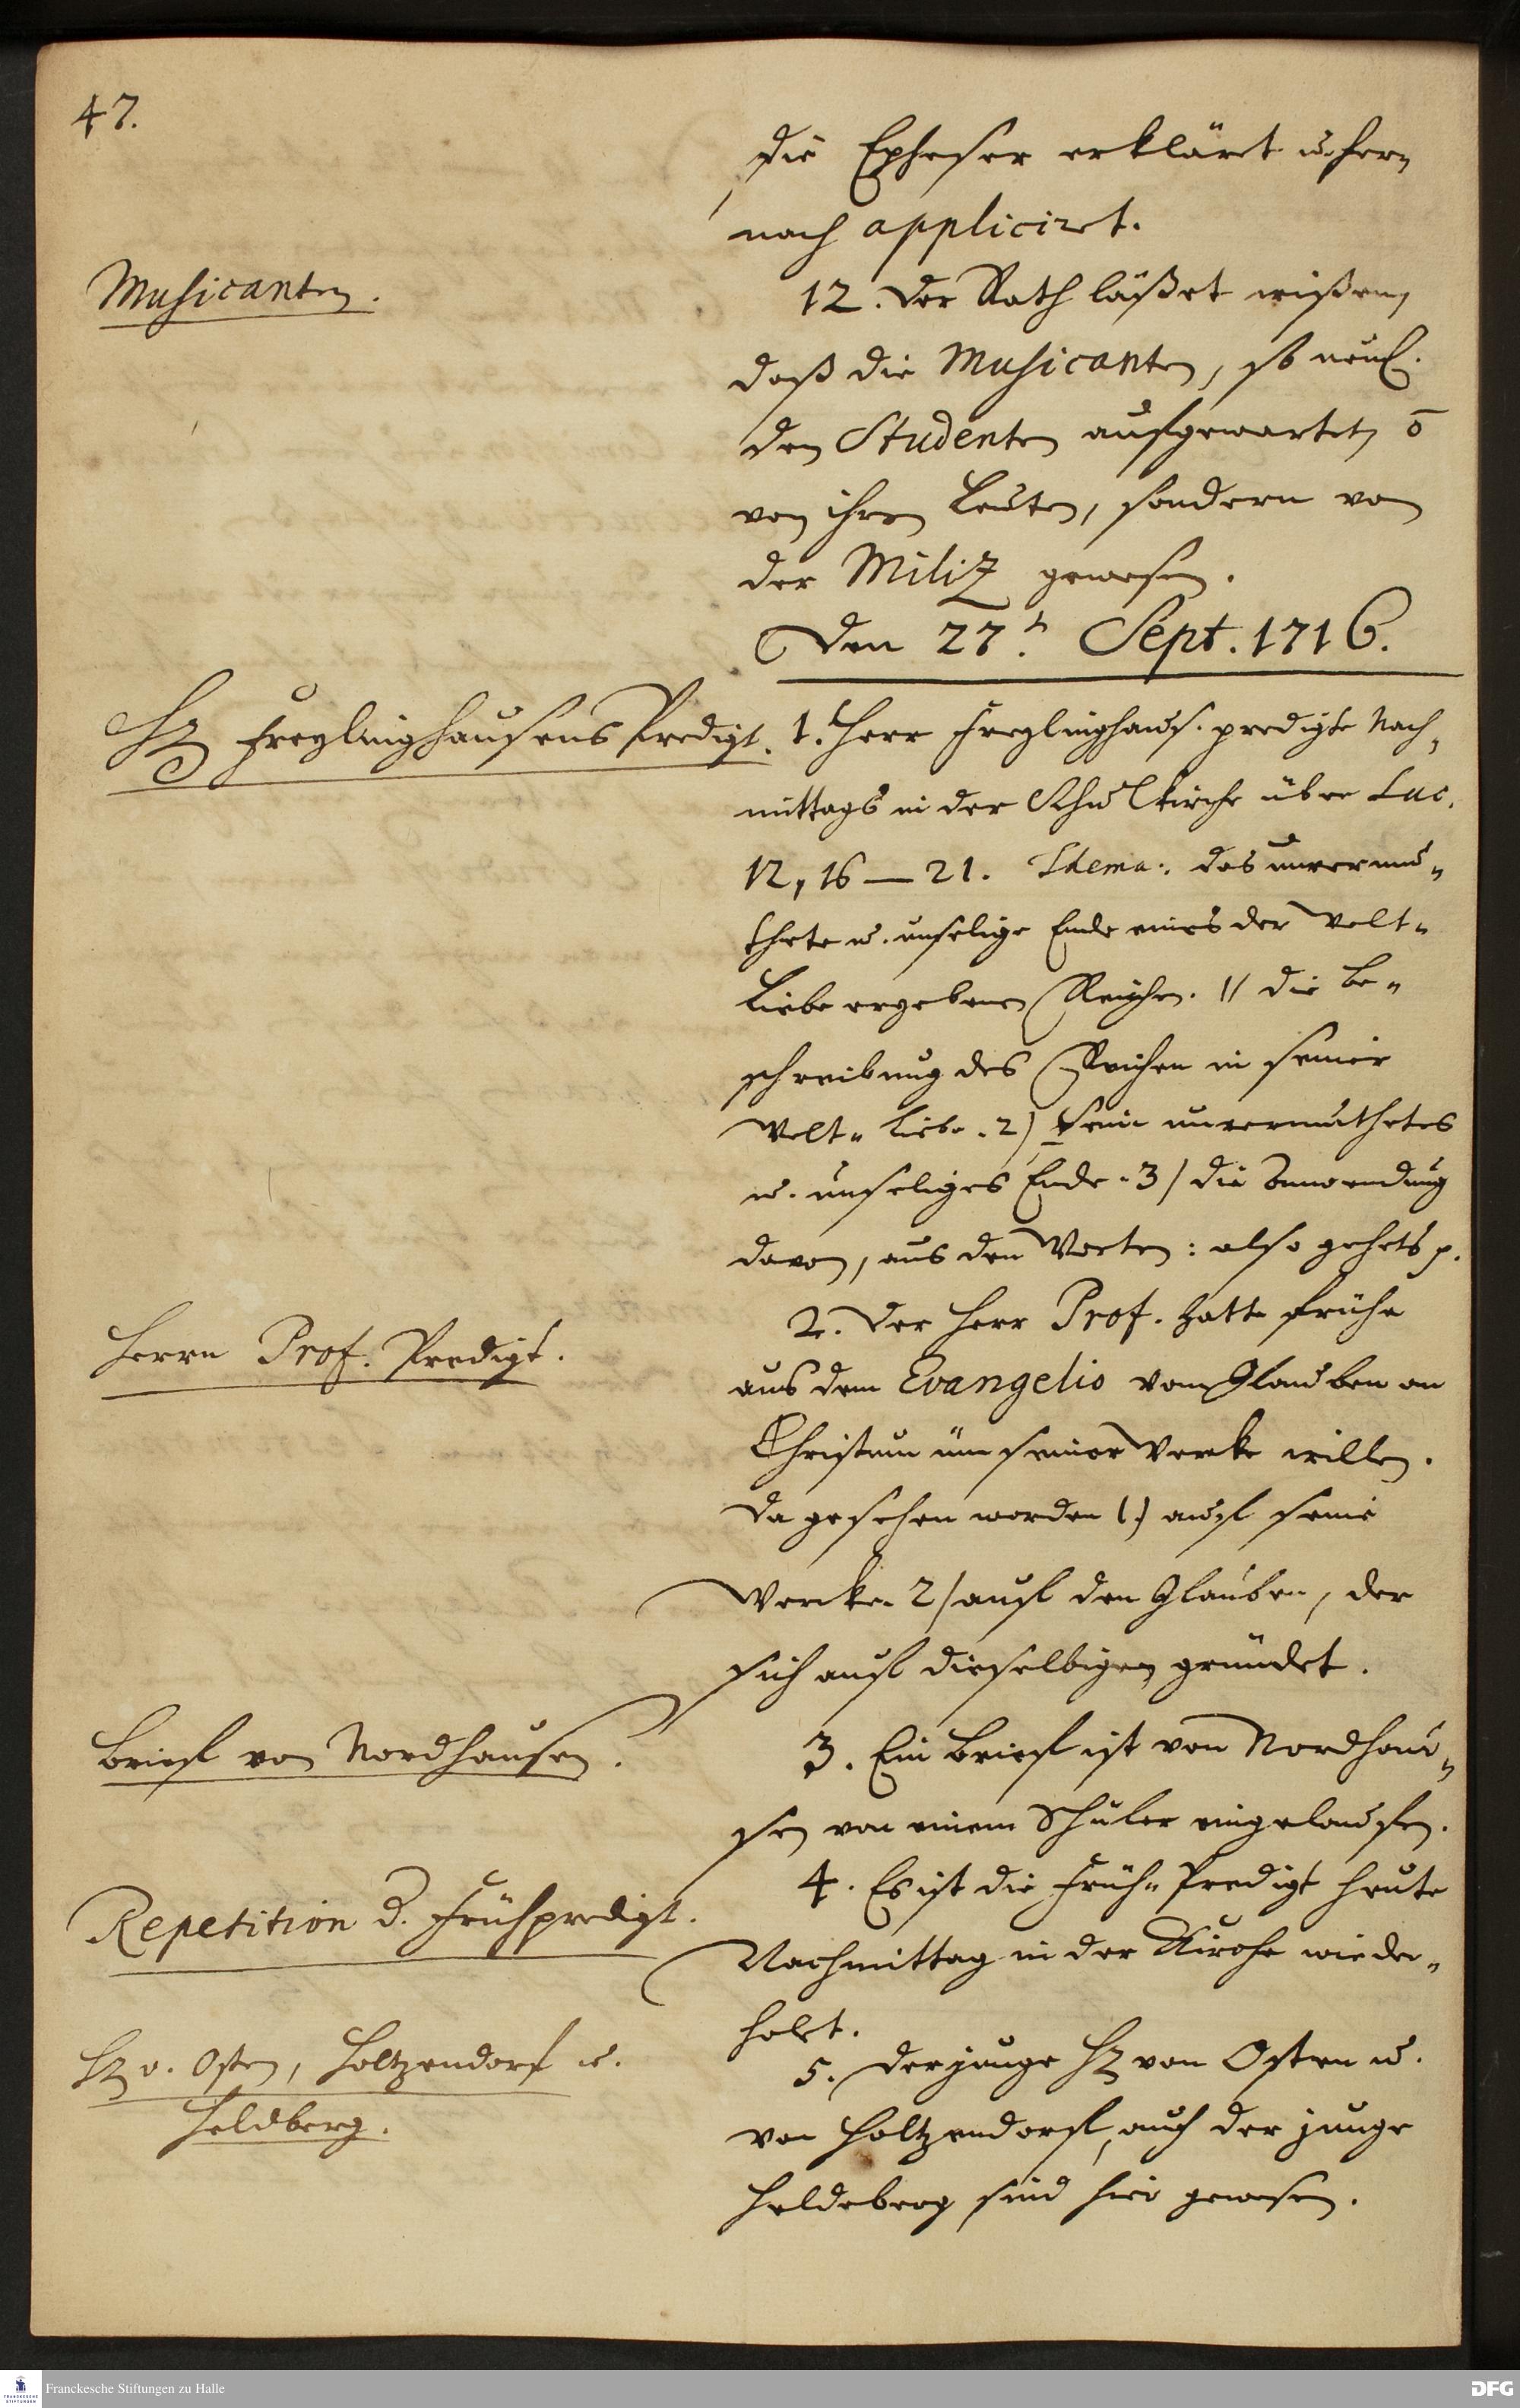 47.
die Epheser erkläret u. her„
nach appliciret.
Musicanten.
12. Der Rath läßet wißen,
daß die Musicanten, so neul.
den Studenten aufgewartet, o̅
von ihren Leuten, sondern von
der Miliz gewesen.
Den 27.t Sept. 1716.
H. Freylinghausens Predigt.
1. Herr Freylinghaus. predigte Nach„
mittags in der Schulkirche über Luc.
12, 16–21. Thema: das unvermu„
thete u. unselige Ende eines der Welt„
Liebe ergebenen Reichen. 1/ die Be„
schreibung des Reichen in seiner
Welt„ Liebe. 2) sein unvermuthetes
u. unseliges Ende. 3/ die Anwendung
davon, aus den Worten: also gehets p.
Herrn Prof. Predigt.
2. Der Herr Prof. hatte frühe
aus dem Evangelio vom Glauben an
Christum üm seiner Wercke willen.
Da gesehen worden 1.) auf seine
Wercke. 2/ auf den Glauben, der
sich auf dieselbigen gründet.
Brief von Nordhausen.
3. Ein Brief ist von Nordhau„
sen von einem Schüler eingelauffen.
Repetition d. Frühpredigt.
4. Es ist die Früh„ Predigt heute
Nachmittag in der Kirche wieder„
holet.
H. v. Osten, Holtzendorf u.
Heldberg.
5. Der junge H. von Osten u.
von Holtzendorf, auch der junge
Heldeberg sind hier gewesen.
Franckesche Stiftungen zu Halle
FRANCKESCHE
STIFTUNGEN
DFG